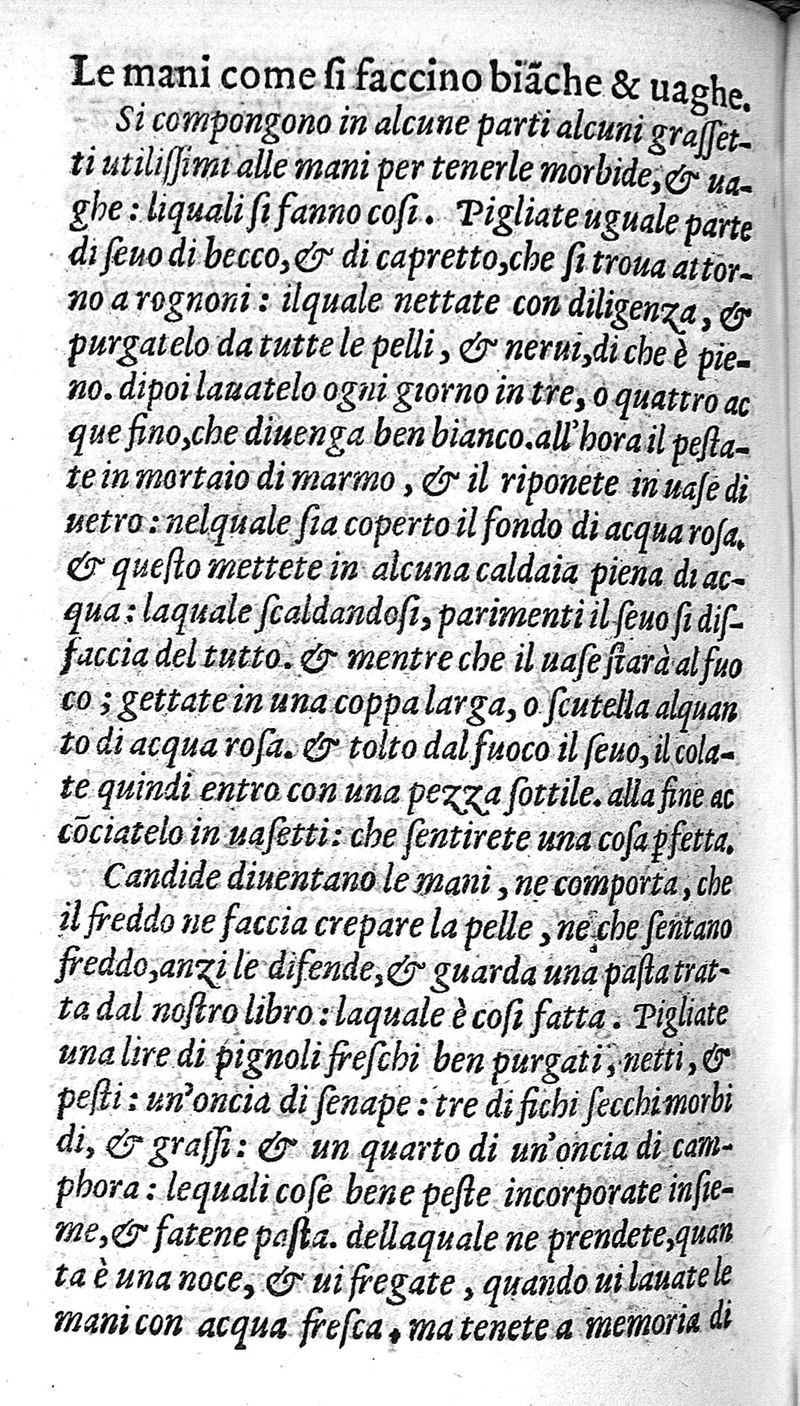 Le mani come ſi faccino biãche & uaghe.
Si compongono in alcune parti alcuni graſſet-
ti utiliſſimi alle mani per tenerle morbide, & ua-
ghe : liquali ſi fanno coſi . Pigliate uguale parte
di ſeuo di becco, & di capretto, che ſi troua attor-
no a rognoni : ilquale nettate con diligenza, &
purgatelo da tutte le pelli, & nerui, di che è pie-
no. dipoi lauatelo ogni giorno in tre, o quattro ac
que fino, che diuenga ben bianco. all'hora il peſta-
te in mortaio di marmo, & il riponete in uaſe di
uetro : nelquale ſia coperto il fondo di acqua roſa.
& queſto mettete in alcuna caldaia piena di ac-
qua : laquale ſcaldandoſi, parimenti il ſeuo ſi diſ-
faccia del tutto. & mentre che il uaſe ſtarà al fuo
co ; gettate in una coppa larga, o ſcutella alquan
to di acqua roſa. & tolto dal fuoco il ſeuo, il cola-
te quindi entro con una pezza ſottile. alla fine ac
cõciatelo in uaſetti : che ſentirete una coſa ꝑfetta.
Candide diuentano le mani, ne comporta, che
il freddo ne faccia crepare la pelle, ne che ſentano
freddo, anzi le difende, & guarda una paſta trat-
ta dal noſtro libro : laquale è coſi fatta . Pigliate
una lire di pignoli freſchi ben purgati, netti, &
peſti : un'oncia di ſenape : tre di fichi ſecchi morbi
di, & graſſi : & un quarto di un'oncia di cam-
phora : lequali coſe bene peſte incorporate inſie-
me, & fatene paſta. dellaquale ne prendete, quan
ta è una noce, & ui fregate, quando ui lauate le
mani con acqua freſca. ma tenete a memoria di